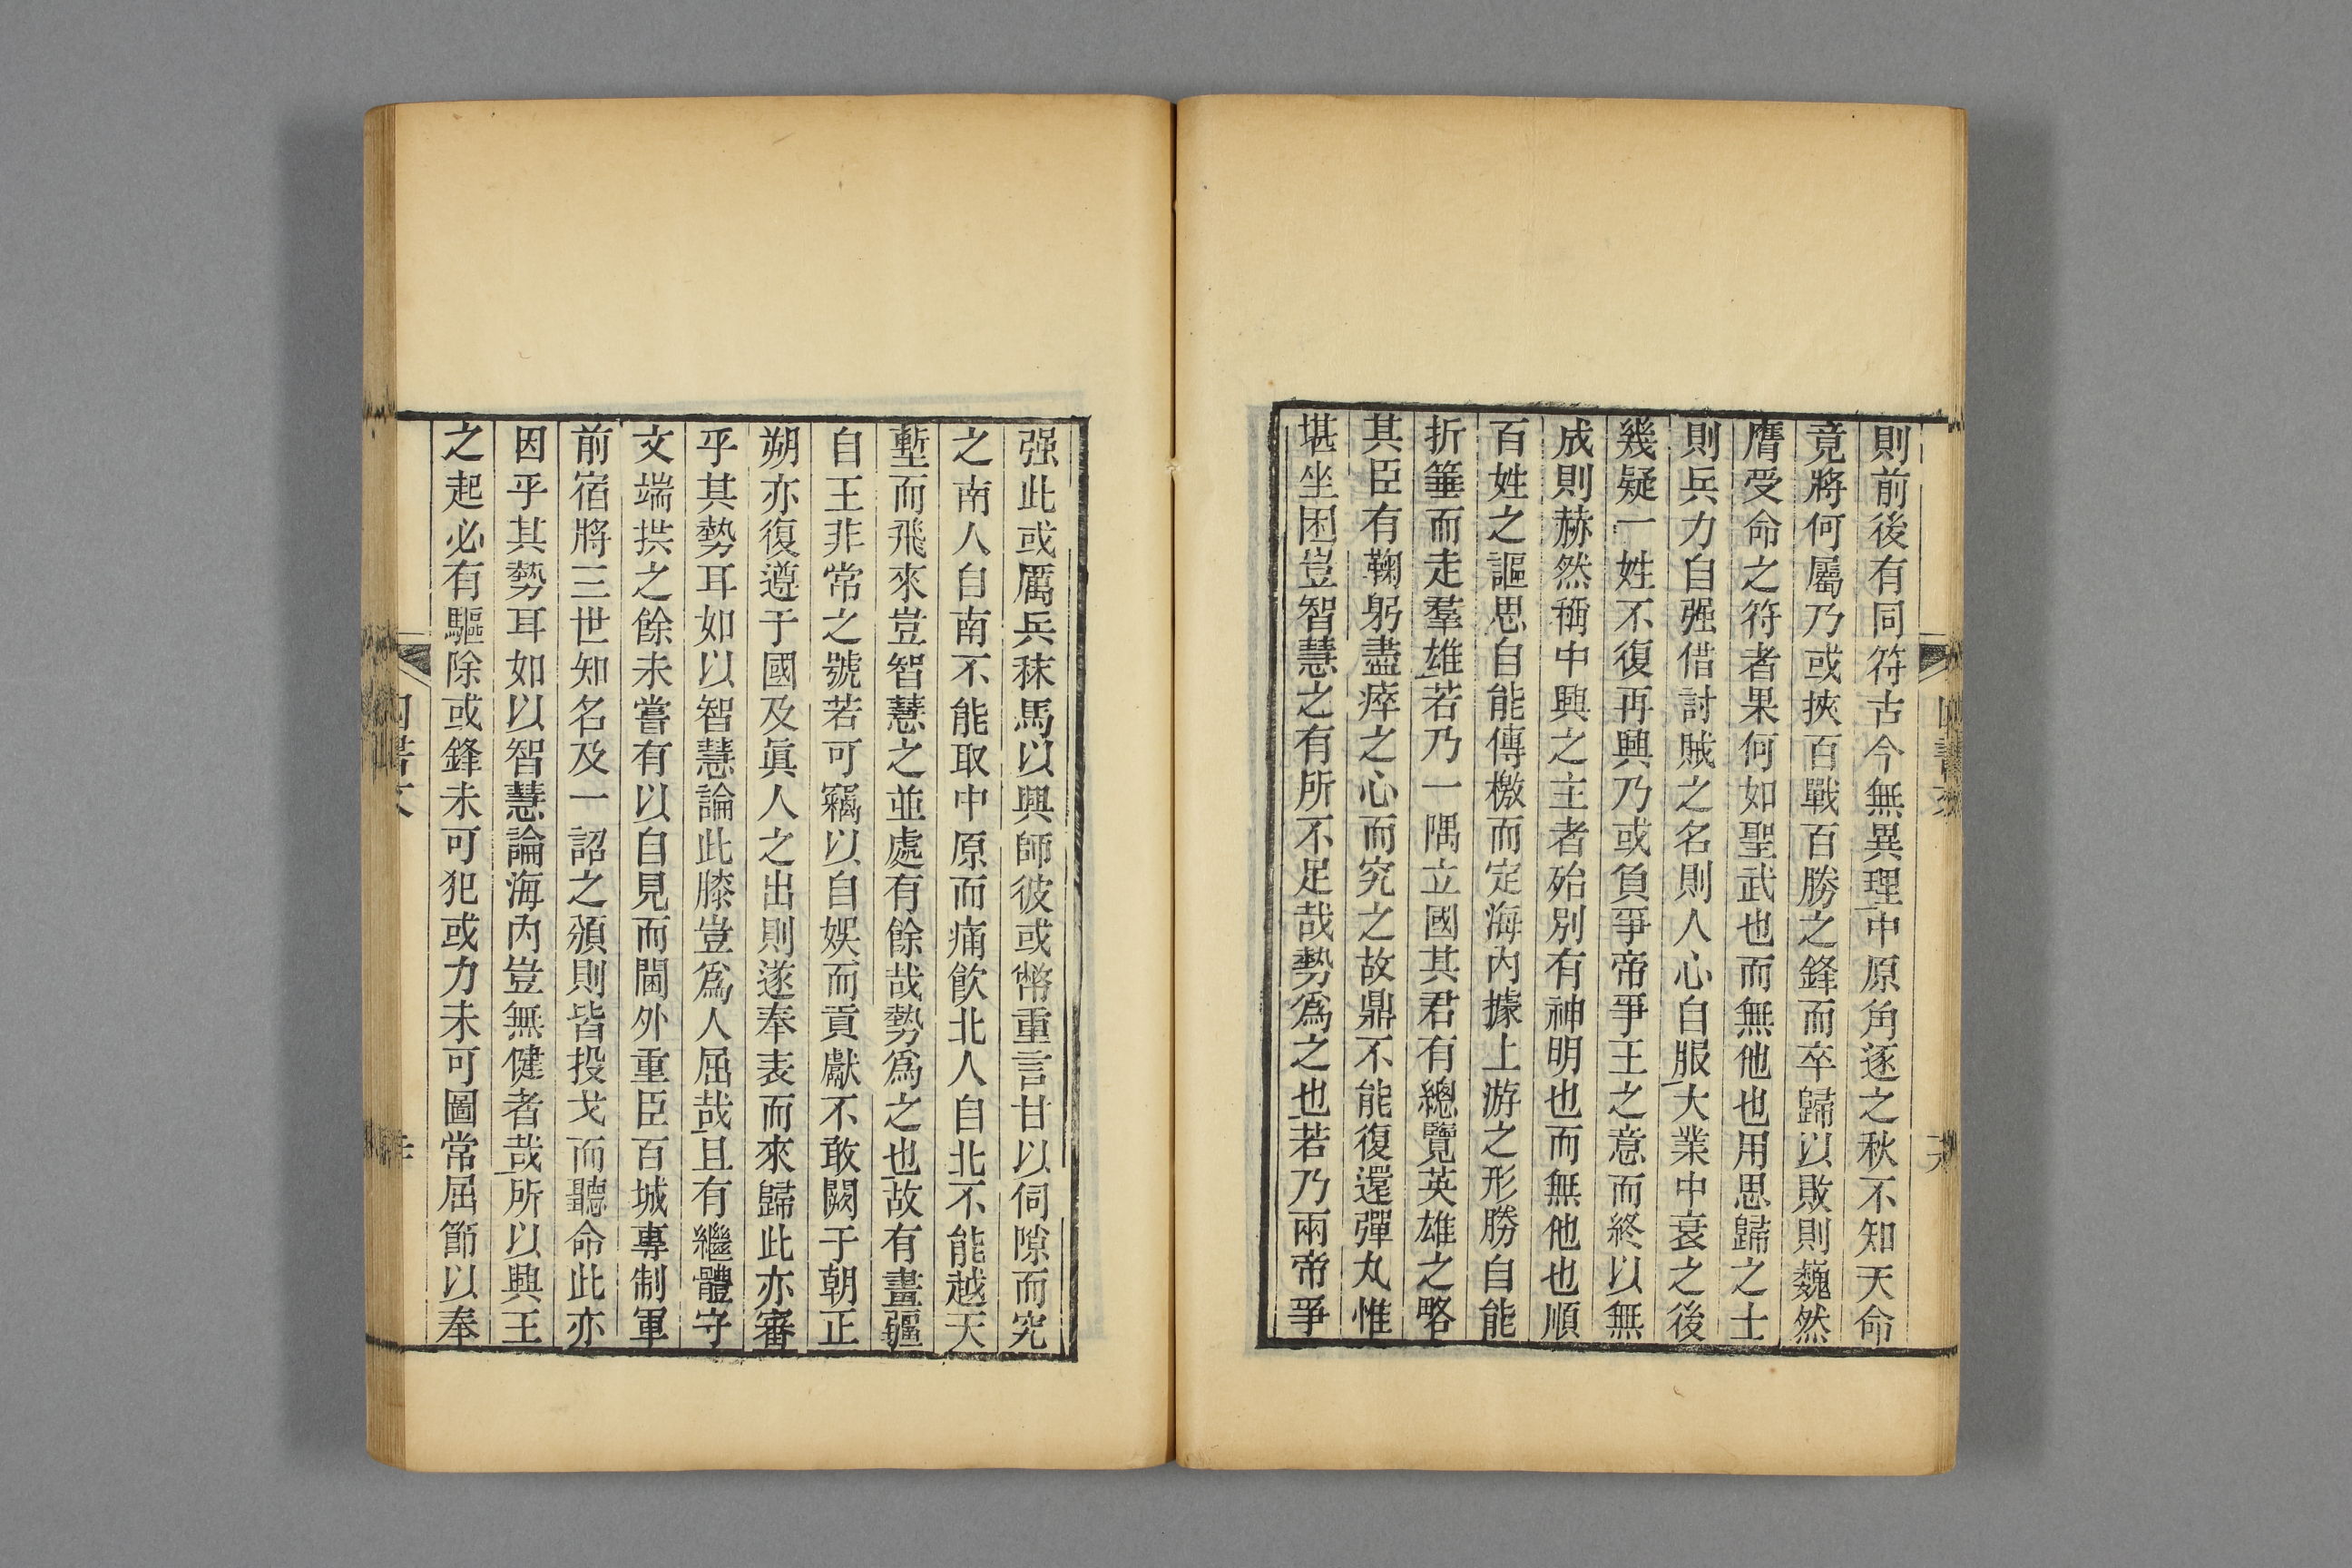 則前後有同符古今無異理中原角逐之秋不知天命
竟將何屬乃或挾百戰百勝之鋒而卒歸以敗則巍然
膺受命之符者果何如聖武也而無他也用思歸之士
則兵力自强借討賊之名則人心自服大業中衰之後
幾疑一姓不復再興乃或負爭帝爭王之意而終以無
成則赫然稱中興之主者殆別有神明也而無他也順
百姓之謳思自能傳檄而定海內據上游之形勝自能
折箠而走羣雄若乃一隅立國其君有總覽英雄之略
其臣有鞠躬盡瘁之心而究之故鼎不能復還彈丸惟
堪坐困豈智慧之有所不足哉勢爲之也若乃兩帝爭
强此或厲兵秣馬以興師彼或幣重言甘以伺隙而究
之南人自南不能取中原而痛飮北人自北不能越天
塹而飛來豈智慧之並處有餘哉勢爲之也故有畫疆
自王非常之號若可竊以自娛而貢獻不敢闕于朝正
朔亦復遵于國及眞人之出則遂奉表而來歸此亦審
乎其勢耳如以智慧論此膝豈爲人屈哉且有繼體守
文端拱之餘未嘗有以自見而閫外重臣百城專制軍
前宿將三世知名及一詔之頒則皆投戈而聽命此亦
因乎其勢耳如以智慧論海內豈無健者哉所以興王
之起必有驅除或鋒未可犯或力未可圖常屈節以奉